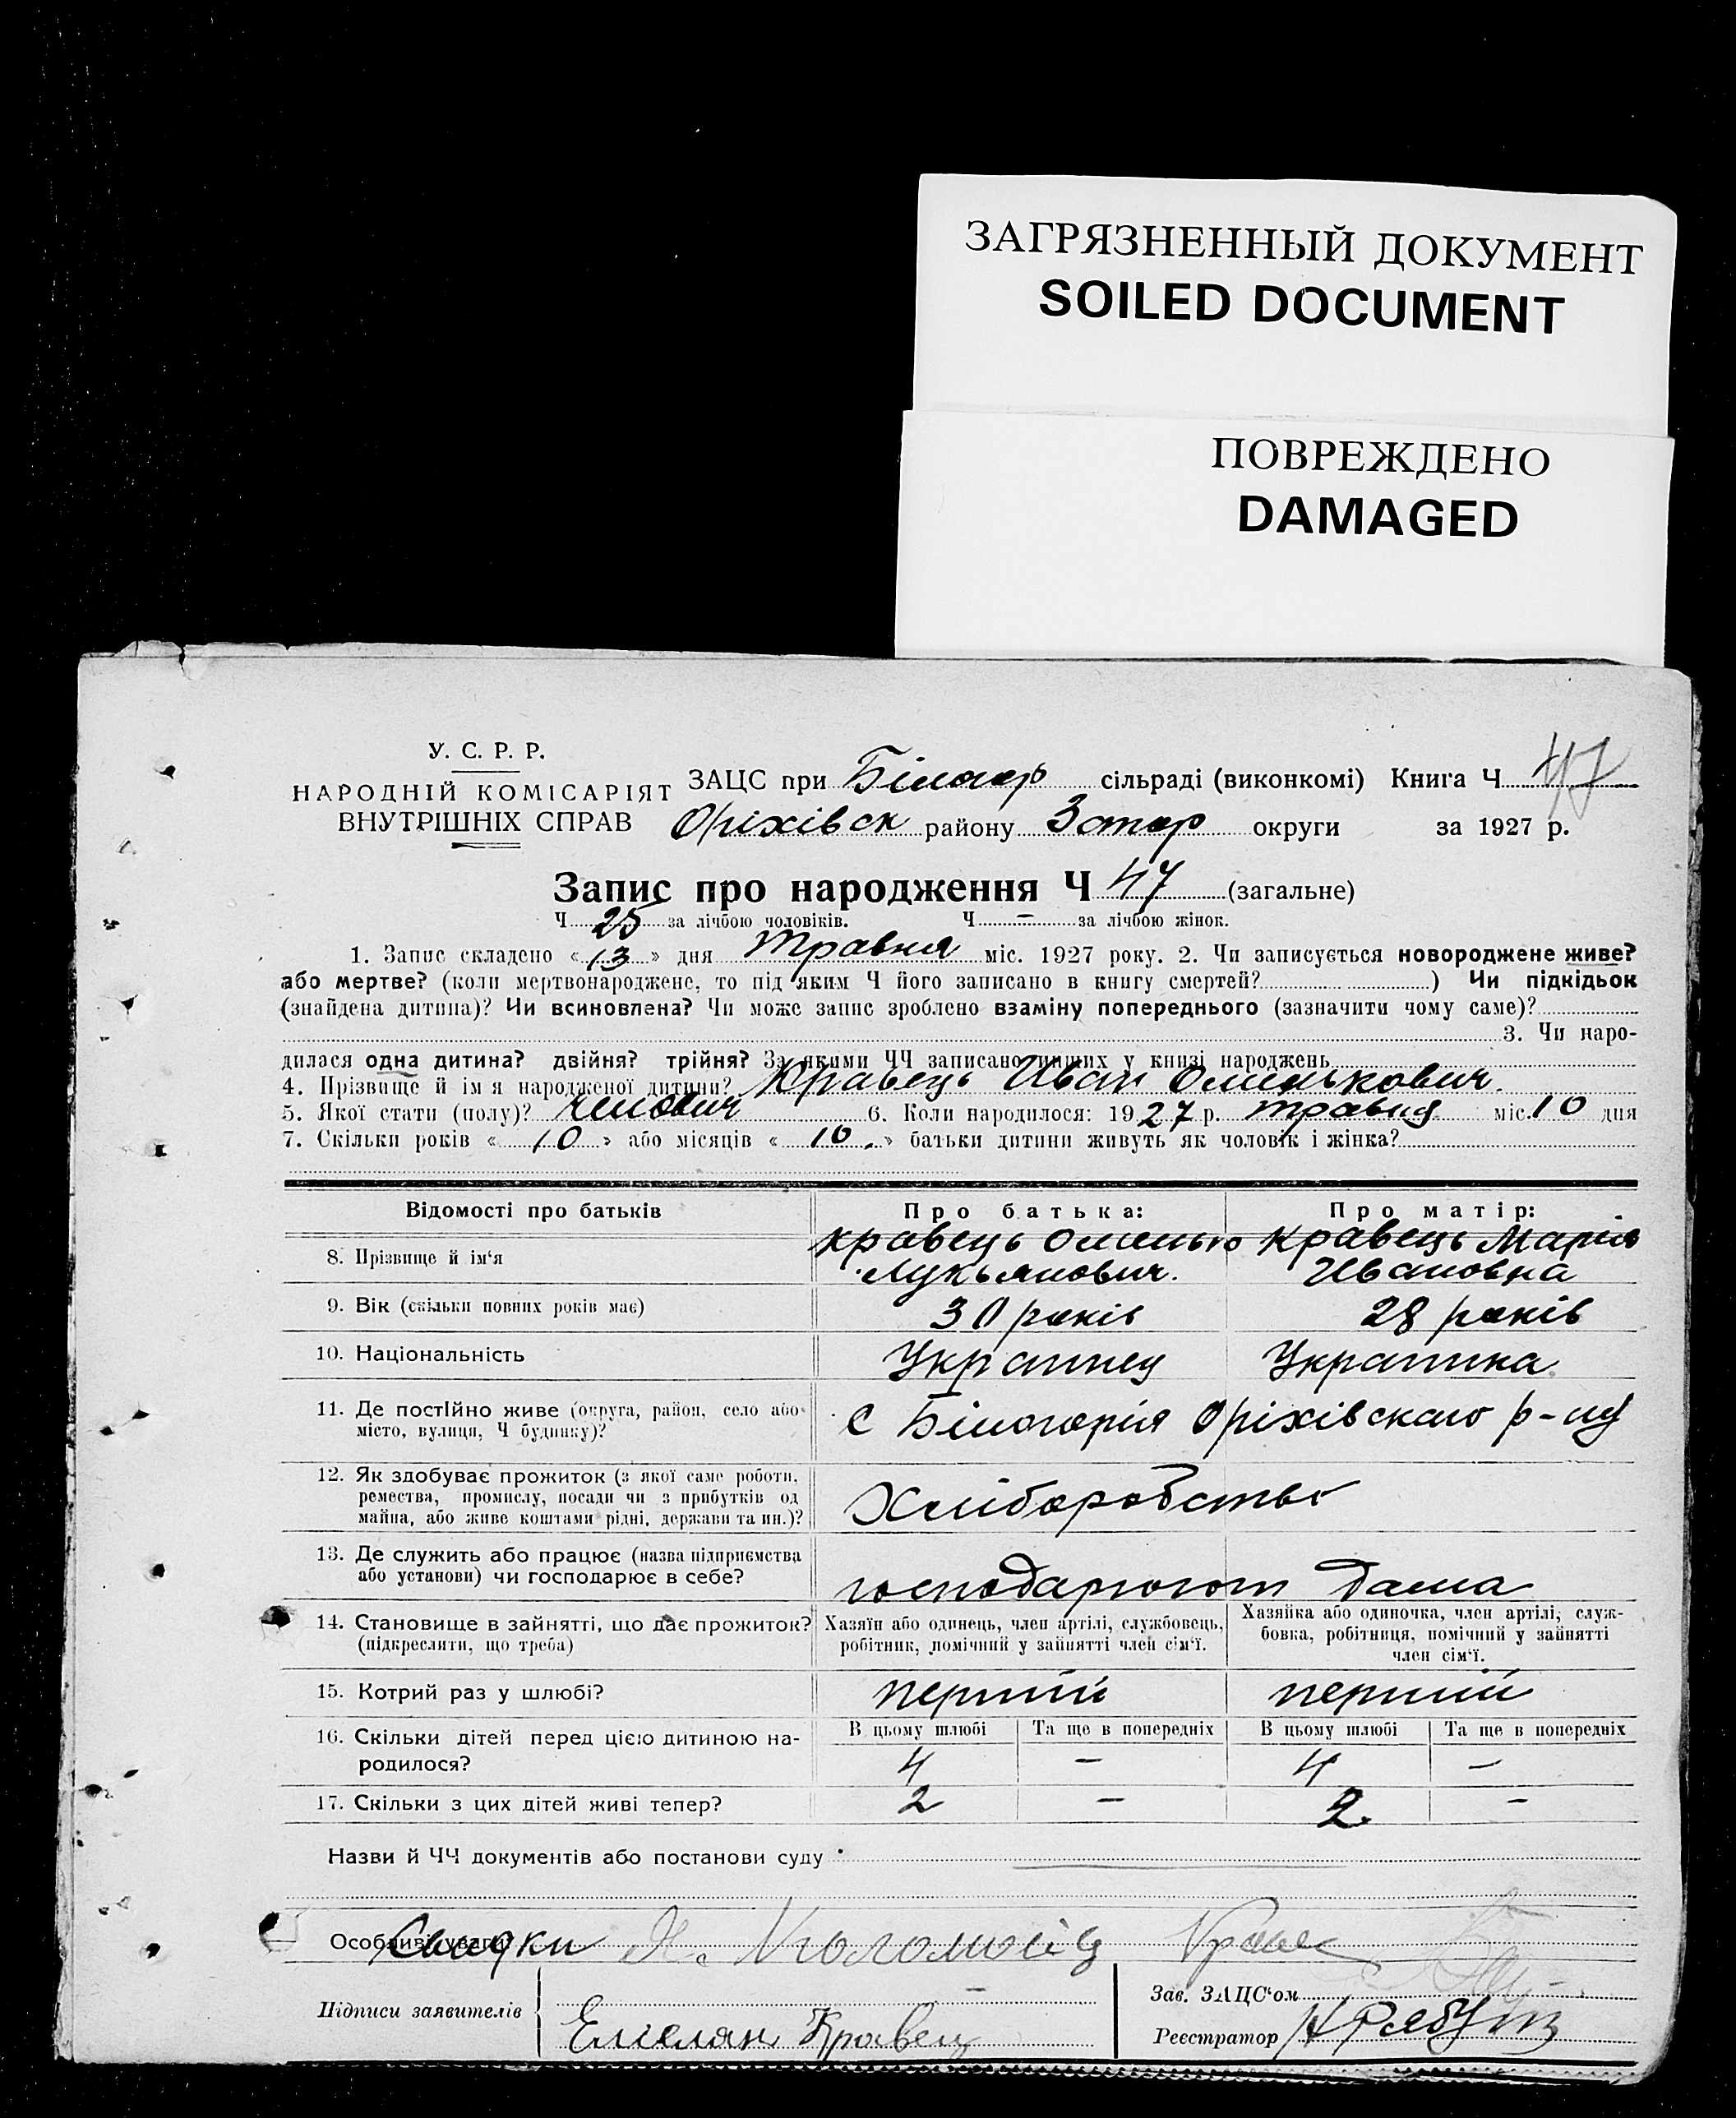 ЗАГРЯЗНЕННЫЙ ДОКУМЕНТ
SOILED DOCUMENT
ПОВРЕЖДЕНО
DAMAGED
У. С. Р. Р.
НАРОДНІЙ КОМІСАРІЯТ
ВНУТРІШНІХ СПРАВ
ЗАЦС при Білогор сільраді (виконкомі) Книга Ч 47
Оріхівск району Запор округи за 1927 р.
Запис про народження Ч 47 (загальне)
Ч. 25 за лічбою чоловіків. Ч. – за лічбою жінок.
1. Запис складено « 13 » дня Травня міс. 1927 року. 2. Чи записується новороджене живе?
або мертве? (коли мертвонароджене, то під яким Ч його записано в книгу смертей? ) Чи підкідьок
(знайдена дитина)? Чи всиновлена? Чи може запис зроблено взаміну попереднього (зазначити чому саме)?
3. Чи наро-
дилася одна дитина? двійня? трійня? За якими ЧЧ записано инших у книзі народжень
4. Прізвище й ім я народженої дитини? Кравець Иван Омелькович.
5. Якої стати (полу)? 6. Коли народилося: 1927 р. травня міс. 10 дня
7. Скільки років « 10 » або місяців « 10. » батьки дитини живуть як чоловік і жінка?
Відомості про батьків
Про батька:
Про матір:
8. Прізвище й ім'я
кравець Омелько
Лукьянович.
Кравець Марія
Ивановна
9. Вік (скільки повних років має)
30 років
28 років
10. Національність
Украинец
Украинка
11. Де постійно живе (округа, район, село або
місто, вулиця, Ч будинку)?
С Білогорія Оріхівскаго р-ну
12. Як здобуває прожиток (з якої саме роботи,
ремества, промислу, посади чи з прибутків од
майна, або живе коштами рідні, держави та ин.)?
Хліборобство
13. Де служить або працює (назва підприємства
або установи) чи господарює в себе?
господарюют дома
14. Становище в зайнятті, що дає прожиток?
(підкреслити, що треба)
Хазяїн або одинець, член артілі, службовець,
робітник, помічний у зайнятті член сім'ї.
Хазяйка або одиночка, член артілі, служ-
бовка, робітниця, помічний у зайнятті
член сім'ї.
15. Котрий раз у шлюбі?
перший
перший
16. Скільки дітей перед цією дитиною на-
родилося?
В цьому шлюбі
Та ще в попередніх
В цьому шлюбі
Та ще в попередніх
4 – 4 –
17. Скільки з цих дітей живі тепер?
2 – 2. –
Назви й ЧЧ документів або постанови суду
Особливі уваги Свидки Коломоец
Підписи заявителів
Емелян Кравец
Зав. ЗАЦС'ом
Реєстратор